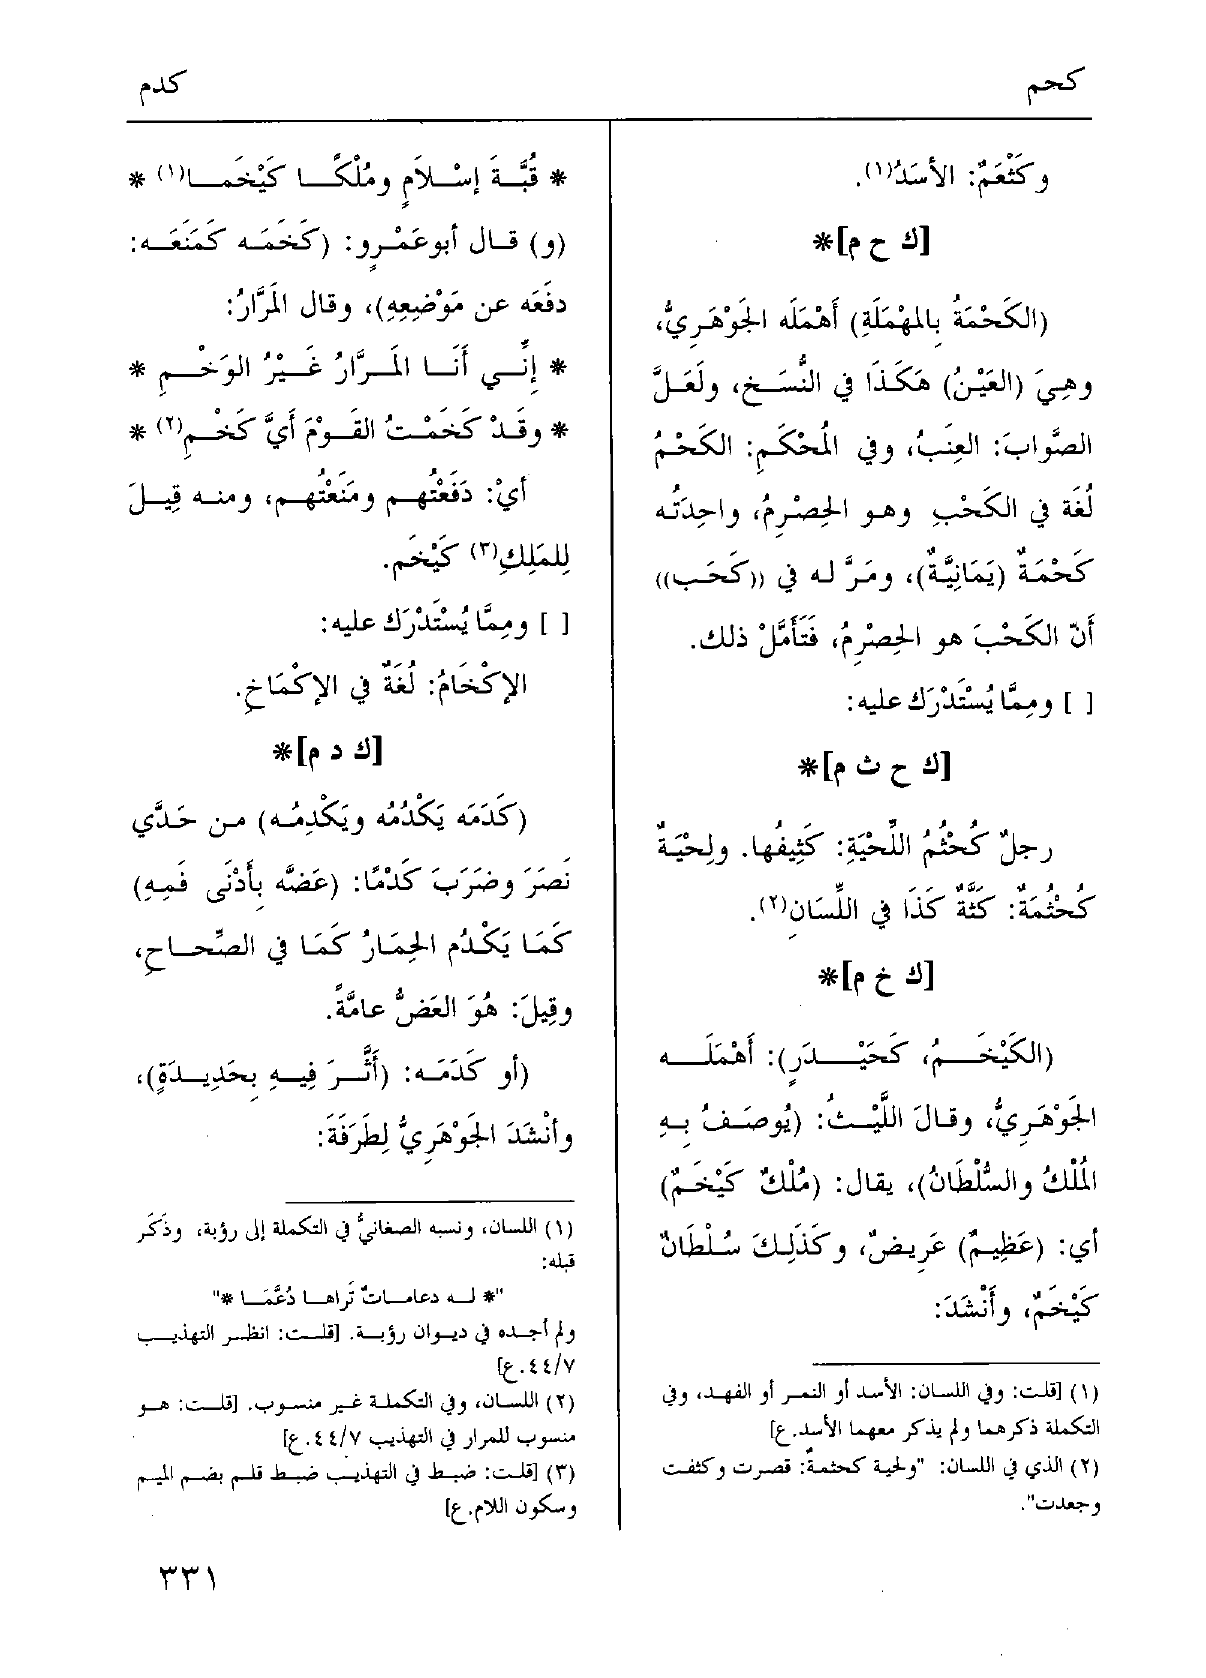 كحم
كدم
وكَثْعَمٌ: الأسَدُ(١).
[ك ح م]*
(الكَحْمَةُ بِالمهْمَلَةِ) أَهْمَلَه الجَوْهَرِيُّ،
وهِيَ (العَيْنُ) هَكَذَا في النُّسَخِ، ولَعَلَّ
الصَّوابَ: العِنَبُ، وفي المُحْكَمِ: الكَحْمُ
لُغَة في الكَحْبِ وهو الحِصْرِمُ، واحِدَتُه
كَحْمَةٌ (يَمَانِيَّةٌ)، ومَرَّ له في ((كَحَب))
أنّ الكَحْبَ هو الحِصْرِمُ، فَتَأَمَّلْ ذلك.
[ ] ومِمَّا يُسْتَدْرَك عليه:
[ك ح ث م]*
رجلٌ كُحْثُمُ اللِّحْيَةِ: كَثِيفُها. ولِحْيَةٌ
كُحْثُمَةٌ: كَثَّةٌ كَذَا في اللِّسَانِ(٢).
[ك خ م]*
(الكَيْخَمُ، كَحَيْدَرٍ): أَهْمَلَه
الجَوْهَرِيُّ، وقالَ اللَّيْثُ: (يُوصَفُ بِهِ
المُلْكُ والسُّلْطَانُ)، يقال: (مُلْكٌ كَيْخَمٌ)
أي: (عَظِيمٌ) عَرِيضٌ، وكَذَلِكَ سُلْطَانٌ
كَيْخَمٌ، وأَنْشَدَ:
(١) [قلت: وفي اللسان: الأسد أو النمر أو الفهد، وفي
التكملة ذكرهما ولم يذكر معهما الأسد.ع]
(٢) الذي في اللسان: "ولحية كحثمةٌ: قصرت وكثفت
وجعدت".
* قُبَّةَ إسْلاَمٍ ومُلْكًا كَيْخَمَا(١) *
(و) قال أبوعَمْرٍو: (كَخَمَه كَمَنَعَه:
دفَعَه عن مَوْضِعِهِ)، وقال المَرَّارُ:
* إِنِّي أَنَا المَرَّارُ غَيْرُ الوَخْمِ *
* وقَدْ كَخَمْتُ القَوْمَ أَيَّ كَخْمِ(٢) *
أيْ: دَفَعْتُهم ومَنَعْتُهم، ومنه قِيلَ
لِلمَلِكِ(٣) كَيْخَم.
[ ] ومِمَّا يُسْتَدْرَك عليه:
الإكْخَامُ: لُغَةٌ في الإكْمَاخِ.
[ك د م]*
(كَدَمَه يَكْدُمُه ويَكْدِمُه) من حَدَّي
نَصَرَ وضَرَبَ كَدْمًا: (عَضَّه بِأَدْنَى فَمِهِ)
كمَا يَكْدُم الحِمَارُ كمَا في الصِّحاحِ،
وقِيلَ: هُوَ العَضُّ عامَّةً.
(أو كَدَمَه: (أَثَّرَ فِيهِ بِحَدِيدَةٍ)،
وأنْشَدَ الجَوْهَرِيُّ لِطَرَفَةَ:
(١) اللسان، ونسبه الصغانيُّ في التكملة إلى رؤبة، وذَكَر
قبله:
"* له دعامات تَراها دُعَّمَا *"
ولم أجده في ديوان رؤبة. [قلت: انظر التهذيب
٤٤/٧.ع]
(٢) اللسان، وفي التكملة غير منسوب. [قلت: هو
منسوب للمرار في التهذيب ٤٤/٧.ع]
(٣) [قلت: ضبط في التهذيب ضبط قلم بضم الميم
وسكون اللام.ع]
٣٣١